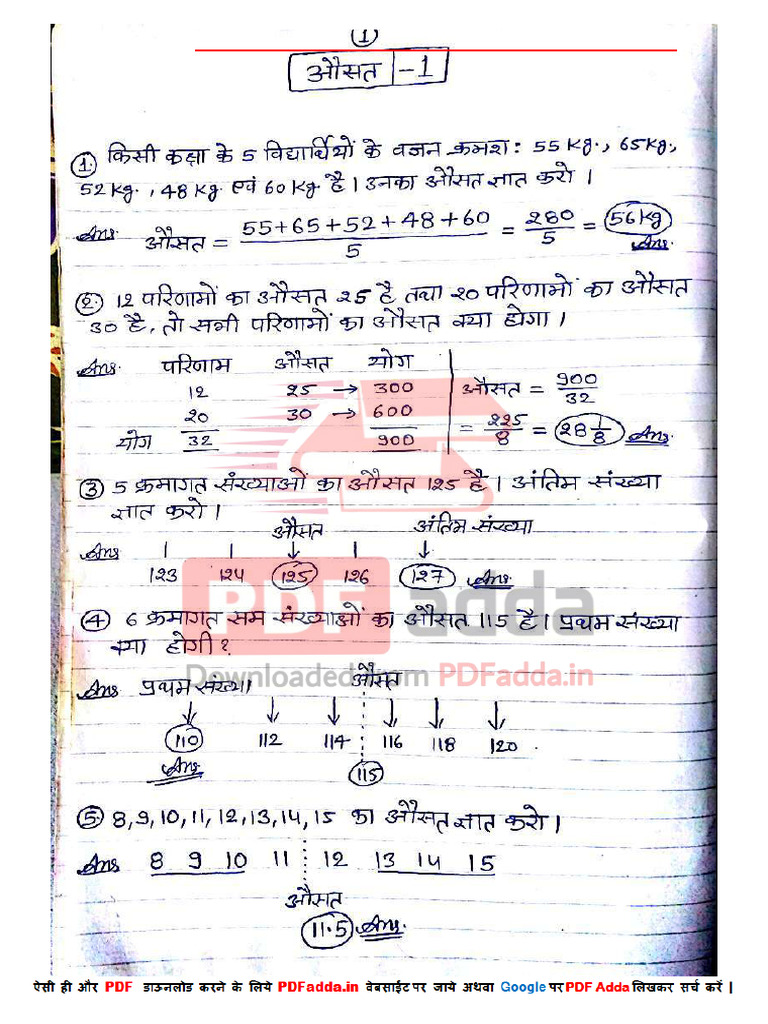 (1)
औसत -1
① किसी कक्षा के 5 विद्यार्थियों के वजन क्रमश: 55 kg., 65kg.,
52kg., 48 kg एवं 60 kg है। उनका औसत ज्ञात करो।
Ans. औसत = 55+65+52+48+60 / 5 = 280 / 5 = 56kg
Ans.
② 12 परिणामों का औसत 25 है तथा 20 परिणामों का औसत
30 है, तो सभी परिणामों का औसत क्या होगा।
Ans. परिणाम औसत योग
12 25 → 300
20 30 → 600
योग 32 900
औसत = 900 / 32
= 225 / 8 = 28 1/8 Ans.
③ 5 क्रमागत संख्याओं का औसत 125 है। अंतिम संख्या
ज्ञात करो।
औसत अंतिम संख्या
Ans 123 124 125 126 127 Ans.
④ 6 क्रमागत सम संख्याओं का औसत 115 है। प्रथम संख्या
क्या होगी?
Ans प्रथम संख्या औसत
110 112 114 116 118 120
Ans. 115
⑤ 8,9,10,11,12,13,14,15 का औसत ज्ञात करो।
Ans 8 9 10 11 12 13 14 15
औसत
11.5 Ans.
PDF adda
Downloaded from PDFadda.in
ऐसी ही और PDF डाऊनलोड करने के लिये PDFadda.in वेबसाईट पर जाये अथवा Google पर PDF Adda लिखकर सर्च करें |